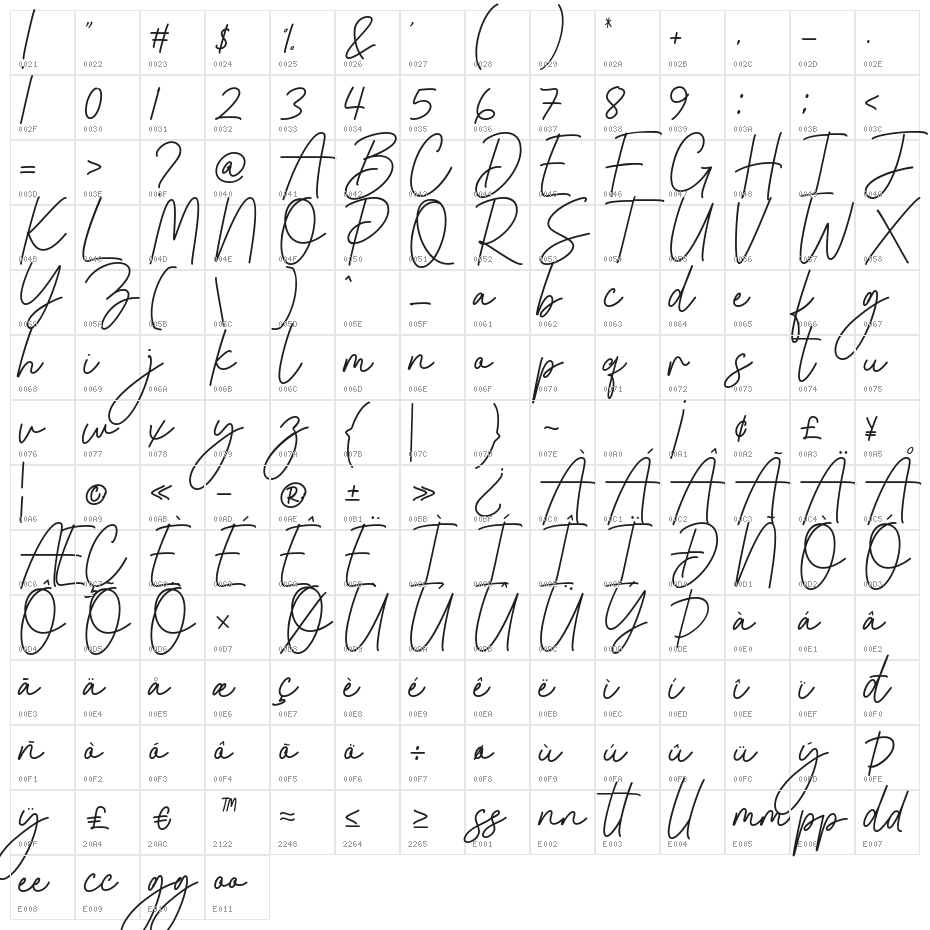 ! " # $ % & ' ( ) * + , - .
0021 0022 0023 0024 0025 0026 0027 0028 0029 002A 002B 002C 002D 002E
/ 0 1 2 3 4 5 6 7 8 9 : ; <
002F 0030 0031 0032 0033 0034 0035 0036 0037 0038 0039 003A 003B 003C
= > ? @ A B C D E F G H I J
003D 003E 003F 0040 0041 0042 0043 0044 0045 0046 0047 0048 0049 004A
K L M N O P Q R S T U V W X
004B 004C 004D 004E 004F 0050 0051 0052 0053 0054 0055 0056 0057 0058
Y Z [ \ ] ^ _ a b c d e f g
0059 005A 005B 005C 005D 005E 005F 0061 0062 0063 0064 0065 0066 0067
h i j k l m n o p q r s t u
0068 0069 006A 006B 006C 006D 006E 006F 0070 0071 0072 0073 0074 0075
v w x y z { | } ~ ¡ ¢ £ ¥
0076 0077 0078 0079 007A 007B 007C 007D 007E 00A0 00A1 00A2 00A3 00A5
¦ © « - ® ± » ¿ À Á Â Ã Ä Å
00A6 00A9 00AB 00AD 00AE 00B1 00BB 00BF 00C0 00C1 00C2 00C3 00C4 00C5
Æ Ç È É Ê Ë Ì Í Î Ï Ð Ñ Ò Ó
00C6 00C7 00C8 00C9 00CA 00CB 00CC 00CD 00CE 00CF 00D0 00D1 00D2 00D3
Ô Õ Ö × Ø Ù Ú Û Ü Ý Þ à á â
00D4 00D5 00D6 00D7 00D8 00D9 00DA 00DB 00DC 00DD 00DE 00E0 00E1 00E2
ã ä å æ ç è é ê ë ì í î ï ð
00E3 00E4 00E5 00E6 00E7 00E8 00E9 00EA 00EB 00EC 00ED 00EE 00EF 00F0
ñ ò ó ô õ ö ÷ ø ù ú û ü ý þ
00F1 00F2 00F3 00F4 00F5 00F6 00F7 00F8 00F9 00FA 00FB 00FC 00FD 00FE
ÿ ₤ € ™ ≈ ≤ ≥ ss nn tt ll mm pp dd
00FF 20A4 20AC 2122 2248 2264 2265 E001 E002 E003 E004 E005 E006 E007
ee cc gg oo
E008 E009 E010 E011